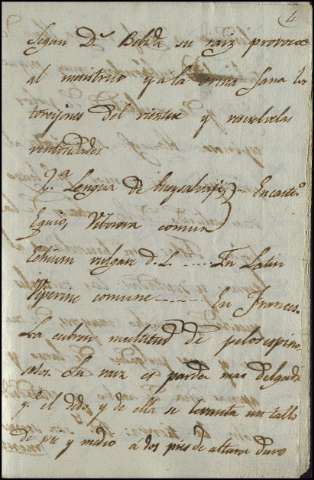 4
Segun D.n Boldo su raiz provoca
al menstruo y a la orina sana los
torsjones del vientre y resuelve las
ventosidades
Y.a Lengua de En Caste.o
Equio, Vibora comun
Echium vulgare d. L. ---- En Latin
Viperine comune ------ En Frances.
La cubren multitud de pelos espino
sos. Su raiz es parda mas delgada
q.e el dedo y de ella se levanta un tallo
de pie y medio a dos pies de altura duro